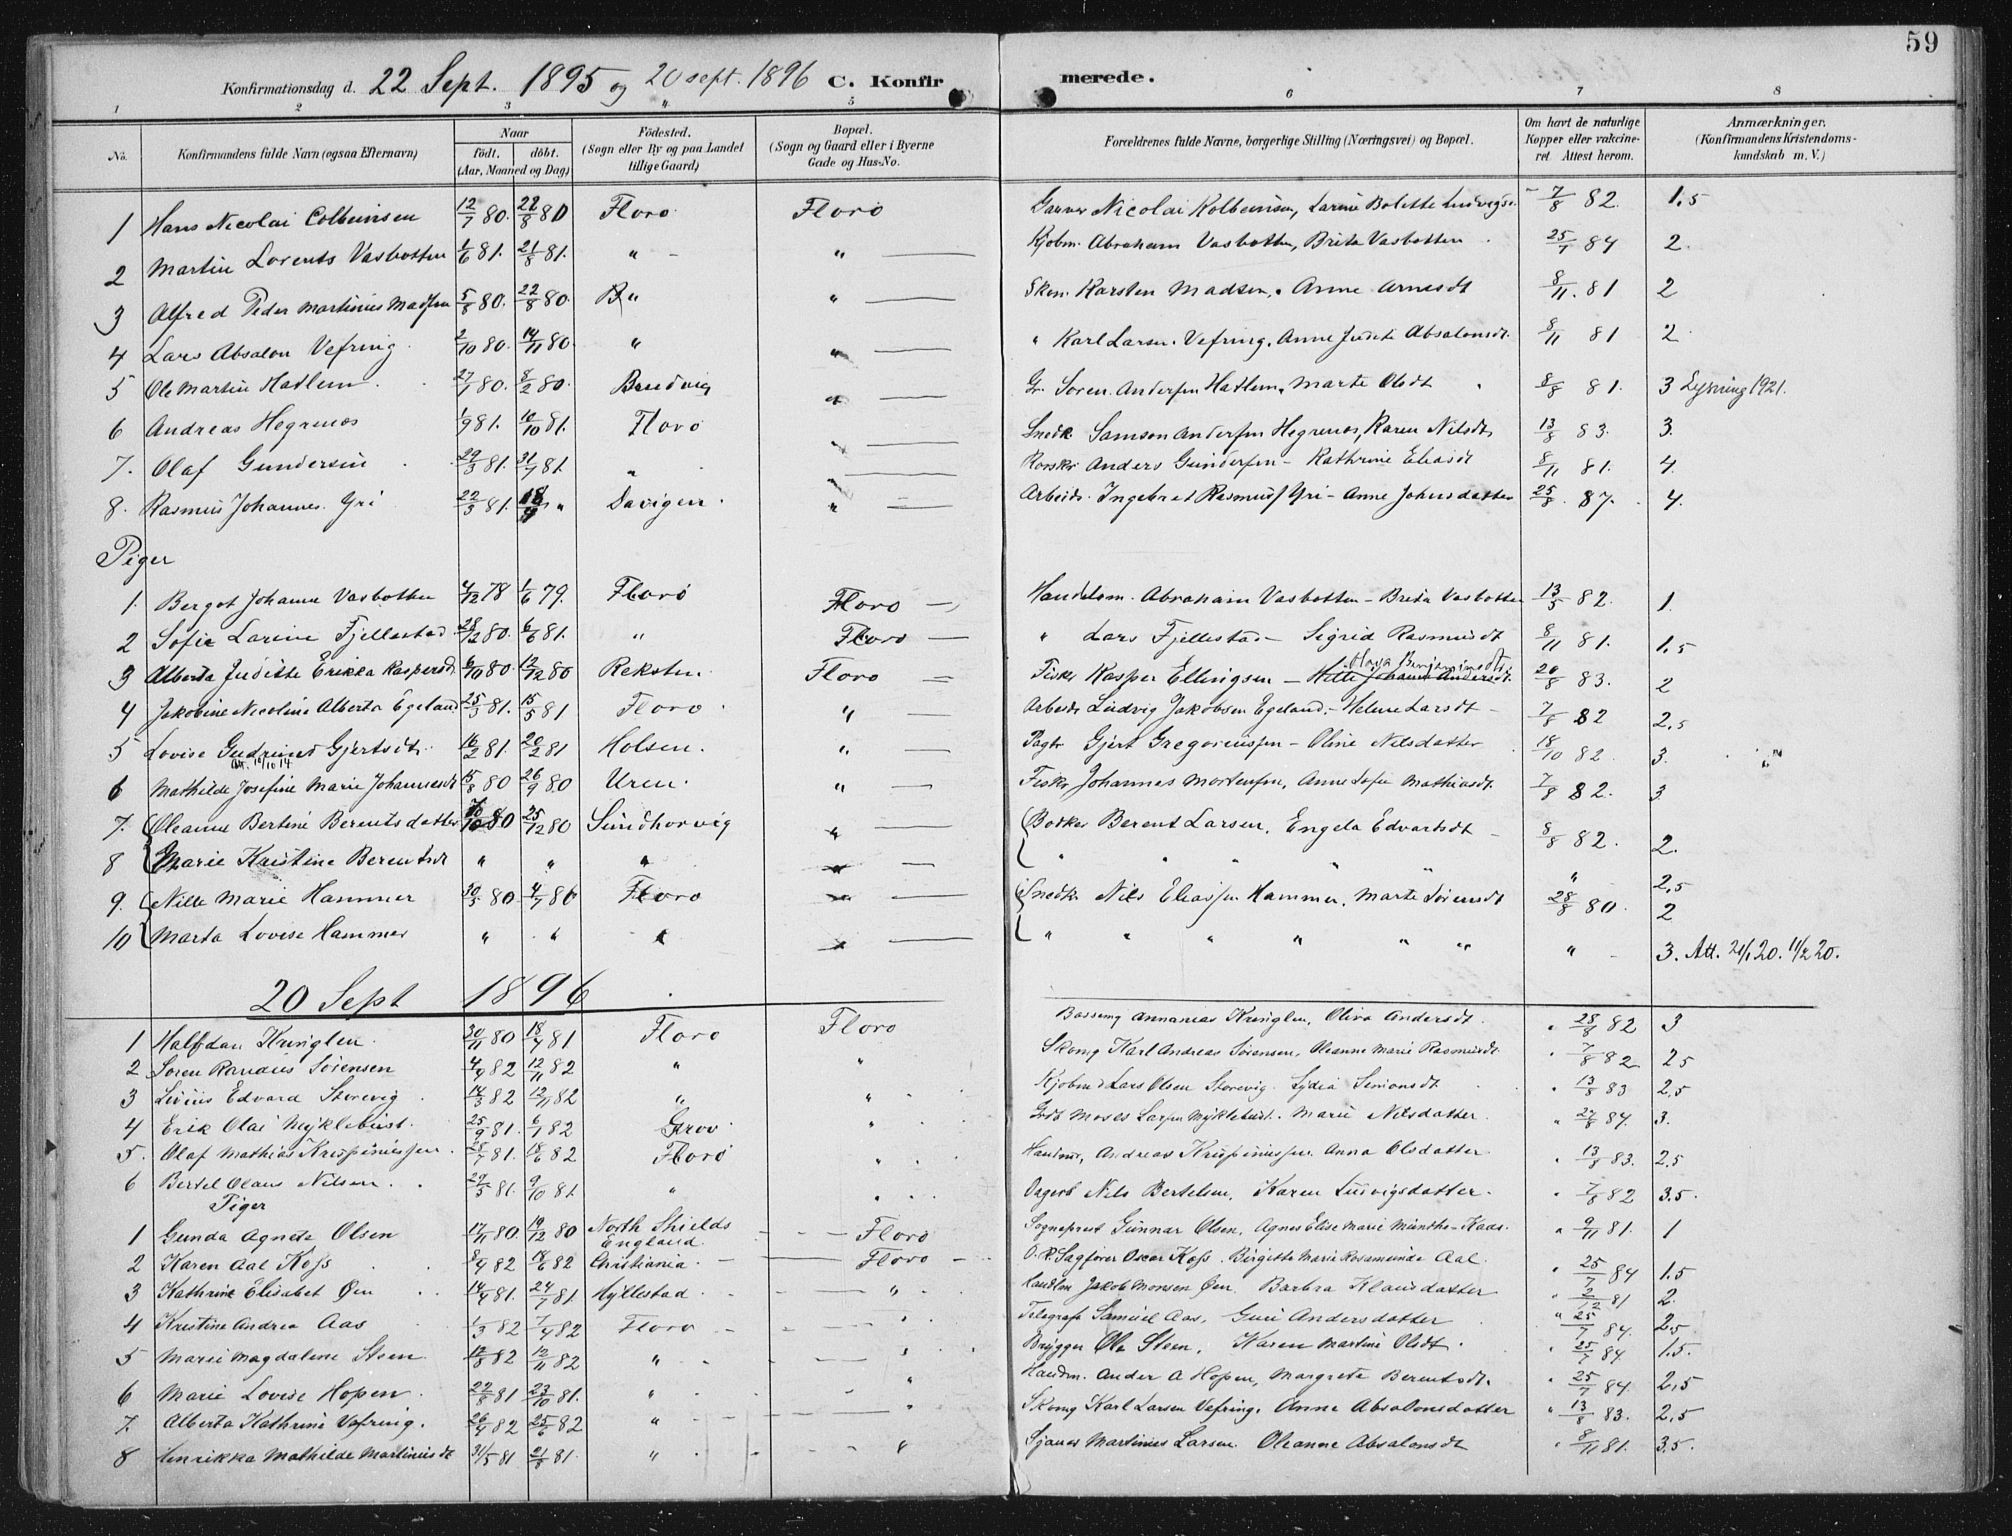 59
Konfirmationsdag d. 22 Sept. 1895 og 20 sept. 1896 C. Konfirmerede.
1 2 3 4 5 6 7 8
No. Konfirmandens fulde Navn (ogsaa Efternavn) Naar födt. döbt. (Aar, Maaned og Dag) Födested. (Sogn eller By og paa Landet tillige Gaard) Bopæl. (Sogn og Gaard eller i Byerne Gade og Hus-No. Forældrenes fulde Navne, borgerlige Stilling (Næringsvei) og Bopæl. Om havt de naturlige Kopper eller vakcineret. Attest herom. Anmærkninger. (Konfirmandens Kristendomskundskab m. V.)
1 Hans Nicolai Colbeinsen 12/7 80. 22/8 80 Floro Floro Garver Nicolai Kolbeinsen, Larine Bolette Ludvigs. 7/8 82. 1.5
2 Martin Lorents Vasbotten 1/6 81. 21/8 81. " " Kjobm. Abraham Vasbotten, Brita Vasbotten 25/7 84 2.
3 Alfred Peder Martinius Madsen 5/8 80. 22/8 80. " " Skom. Karsten Madsen, Anne Arnesdt 8/11. 81 2
4 Lars Absalon Vefring 2/10 80. 14/11 80. " " " Karl Larsen Vefring. Anne Judite Absalonsdt. 8/11 81 2.
5 Ole Martin Hatlem 27/1 80. 8/2 80. Bredvig " Gr. Soren Andersen Hatlem, Marte Olsdt 8/8 81. 3 Lysning 1921.
6 Andreas Hegrenes 1/9 81. 10/10 81. Floro " Snedk. Samson Andersen Hegrenes, Karen Nilsdt, 13/8 83. 3.
7. Olaf Gundersen 29/3 81. 31/7 81. " " Anders Gundersen - Kathrine Eliasdt 8/11 81. 4.
8. Rasmus Johannes Yri 22/3 81. 18/9 " Davigen " Arbeids. Ingebret Rasmus Yri - Anne Johnsdatter 25/8. 87. 4.
Piger
1. Bergot Johanne Vasbotten 4/12 78 1/6 79. Floro Floro Handelsm. Abraham Vasbotten - Brita Vasbotten 13/5 82. 1.
2 Sofie Larine Fjellestad 28/12 80. 6/6 81. " Floro " Lars Fjellestad - Sigrid Rasmusdt 8/11 81. 1.5
3 Alberta Juditte Erikka Kaspersdt 6/10 80. 12/12 80 Reksten Floro Fisker Kasper Ellingsen - Johanne Andersdt. 20/8 83. 2
4 Jakobine Nicoline Alberta Egeland 25/3 81. 15/5 81 Floro " Arbeids Ludvig Jakobsen Egeland. - Helene Larsdt - 7/8 82 2.5
5 Lovise Gudrine Gjertsdt. 16/2 81. 20/2 81 Holsen. " Gjert Gregoriussen - Oline Nilsdatter 18/10 82. 3.
Att. 16/10 14
6 Mathilde Josefine Marie Johannesdt 15/8 80 26/9 80 Uren. " Fisker Johannes Mortensen, Anne Sofie Mathiasdt. 7/8 82. 3
7. Oleanne Bertine Berentsdatter 80 25/12 80 " Botker Berent Larsen, Engela Edvartsdt - 8/8 82. 2.
8 Marie Kristine Berentsdt " " " " " " " " " 2,5
9. Nille Marie Hammer 30/5 80. 4/7 80 Floro " Snedk Nils Eliassen Hammer, Marte Sorensdt 28/8 80. 2
10 Marta Lovise Hammer " " " " " " " " " " 3. Att. 21/1 20. 11/2 20.
20 Sept 1896
1 Halfdan Kringlen 30/11 80 18/4 81 Floro Floro Annanias Kringlen, Oliva Andersdt. " 28/8 82 3
2 Soren Randius Sorensen 4/9 82 12/11 82 " " Skomg Karl Andreas Sorensen, Oleanne Marie Rasmusdt. " 7/8 82 2,5
3 Edvard Storevig 14/3 82 12/11 82 " " Kjobmd Lars Olsen Storevig. Lydia Simonsdt " 13/8 83 2,5
4 Erik Olai Myklebust. 25/9 81. 6/1 82 Grov " Moses Larsen Myklebust. Marie Nilsdatter. " 27/8 84. 3.
5. Olaf Mathias Krispiniussen 28/7 81. 18/6 82 Floro " Andreas Krispiniussen Anna Olsdatter " 13/8 83. 2,5
6 Bertel Olaus Nilsen. 29/5 81. 9/10 81. " " Nils Bertelsen, Karen Ludvigsdatter. " 7/8 82 3.5.
Piger
1 Gunda Agnete Olsen 17/11 80. 19/12 80 North Shields England. Floro Sogneprest Gunnar Olsen, Agnes Elise Marie Munthe-Kaas. " 9/11 81. 1
2 Karen Aal Koss 8/4 82 18/6 82 Christiania. Floro O.R.Sagforer Oscar Koss. Birgitte Marie Rosamunde Aal. " 25/7 84 1.5
3 Kathrine Elisabet Oen 14/4 81. 24/7 81. Hyllestad " Handlm Jakob Monsen Oen Barbra Klausdatter " 2/12 81 2.
4 Kristine Andrea Aas 1/3 82 7/4 82 Floro " Telegrafe Samuel Aas, Guri Andersdatter " 25/7 84. 2,5
5 Marie Magdalene Steen 12/8 82 12/11 82 " " Brygger Ole Steen, Karen Martine Olsdt. " 25/7 84 1.5.
6 Marie Lovise Hopen 22/8 81 23/10 81. " " Handm. Ander A Hopen, Margrete Berentsdt. " 25/7 84. 2,5
7. Alberta Kathrine Vefring. 26/4 82 25/6 82 " " Skomg Karl Larsen Vefring, Anne Absalonsdatter " 13/8 83. 2,5
8 Henrikka Mathilde Martinusdt 31/5 81 21/8 81. " " Martinius Larsen Oleanne Absalonsdt " 8/11 81. 3.5.